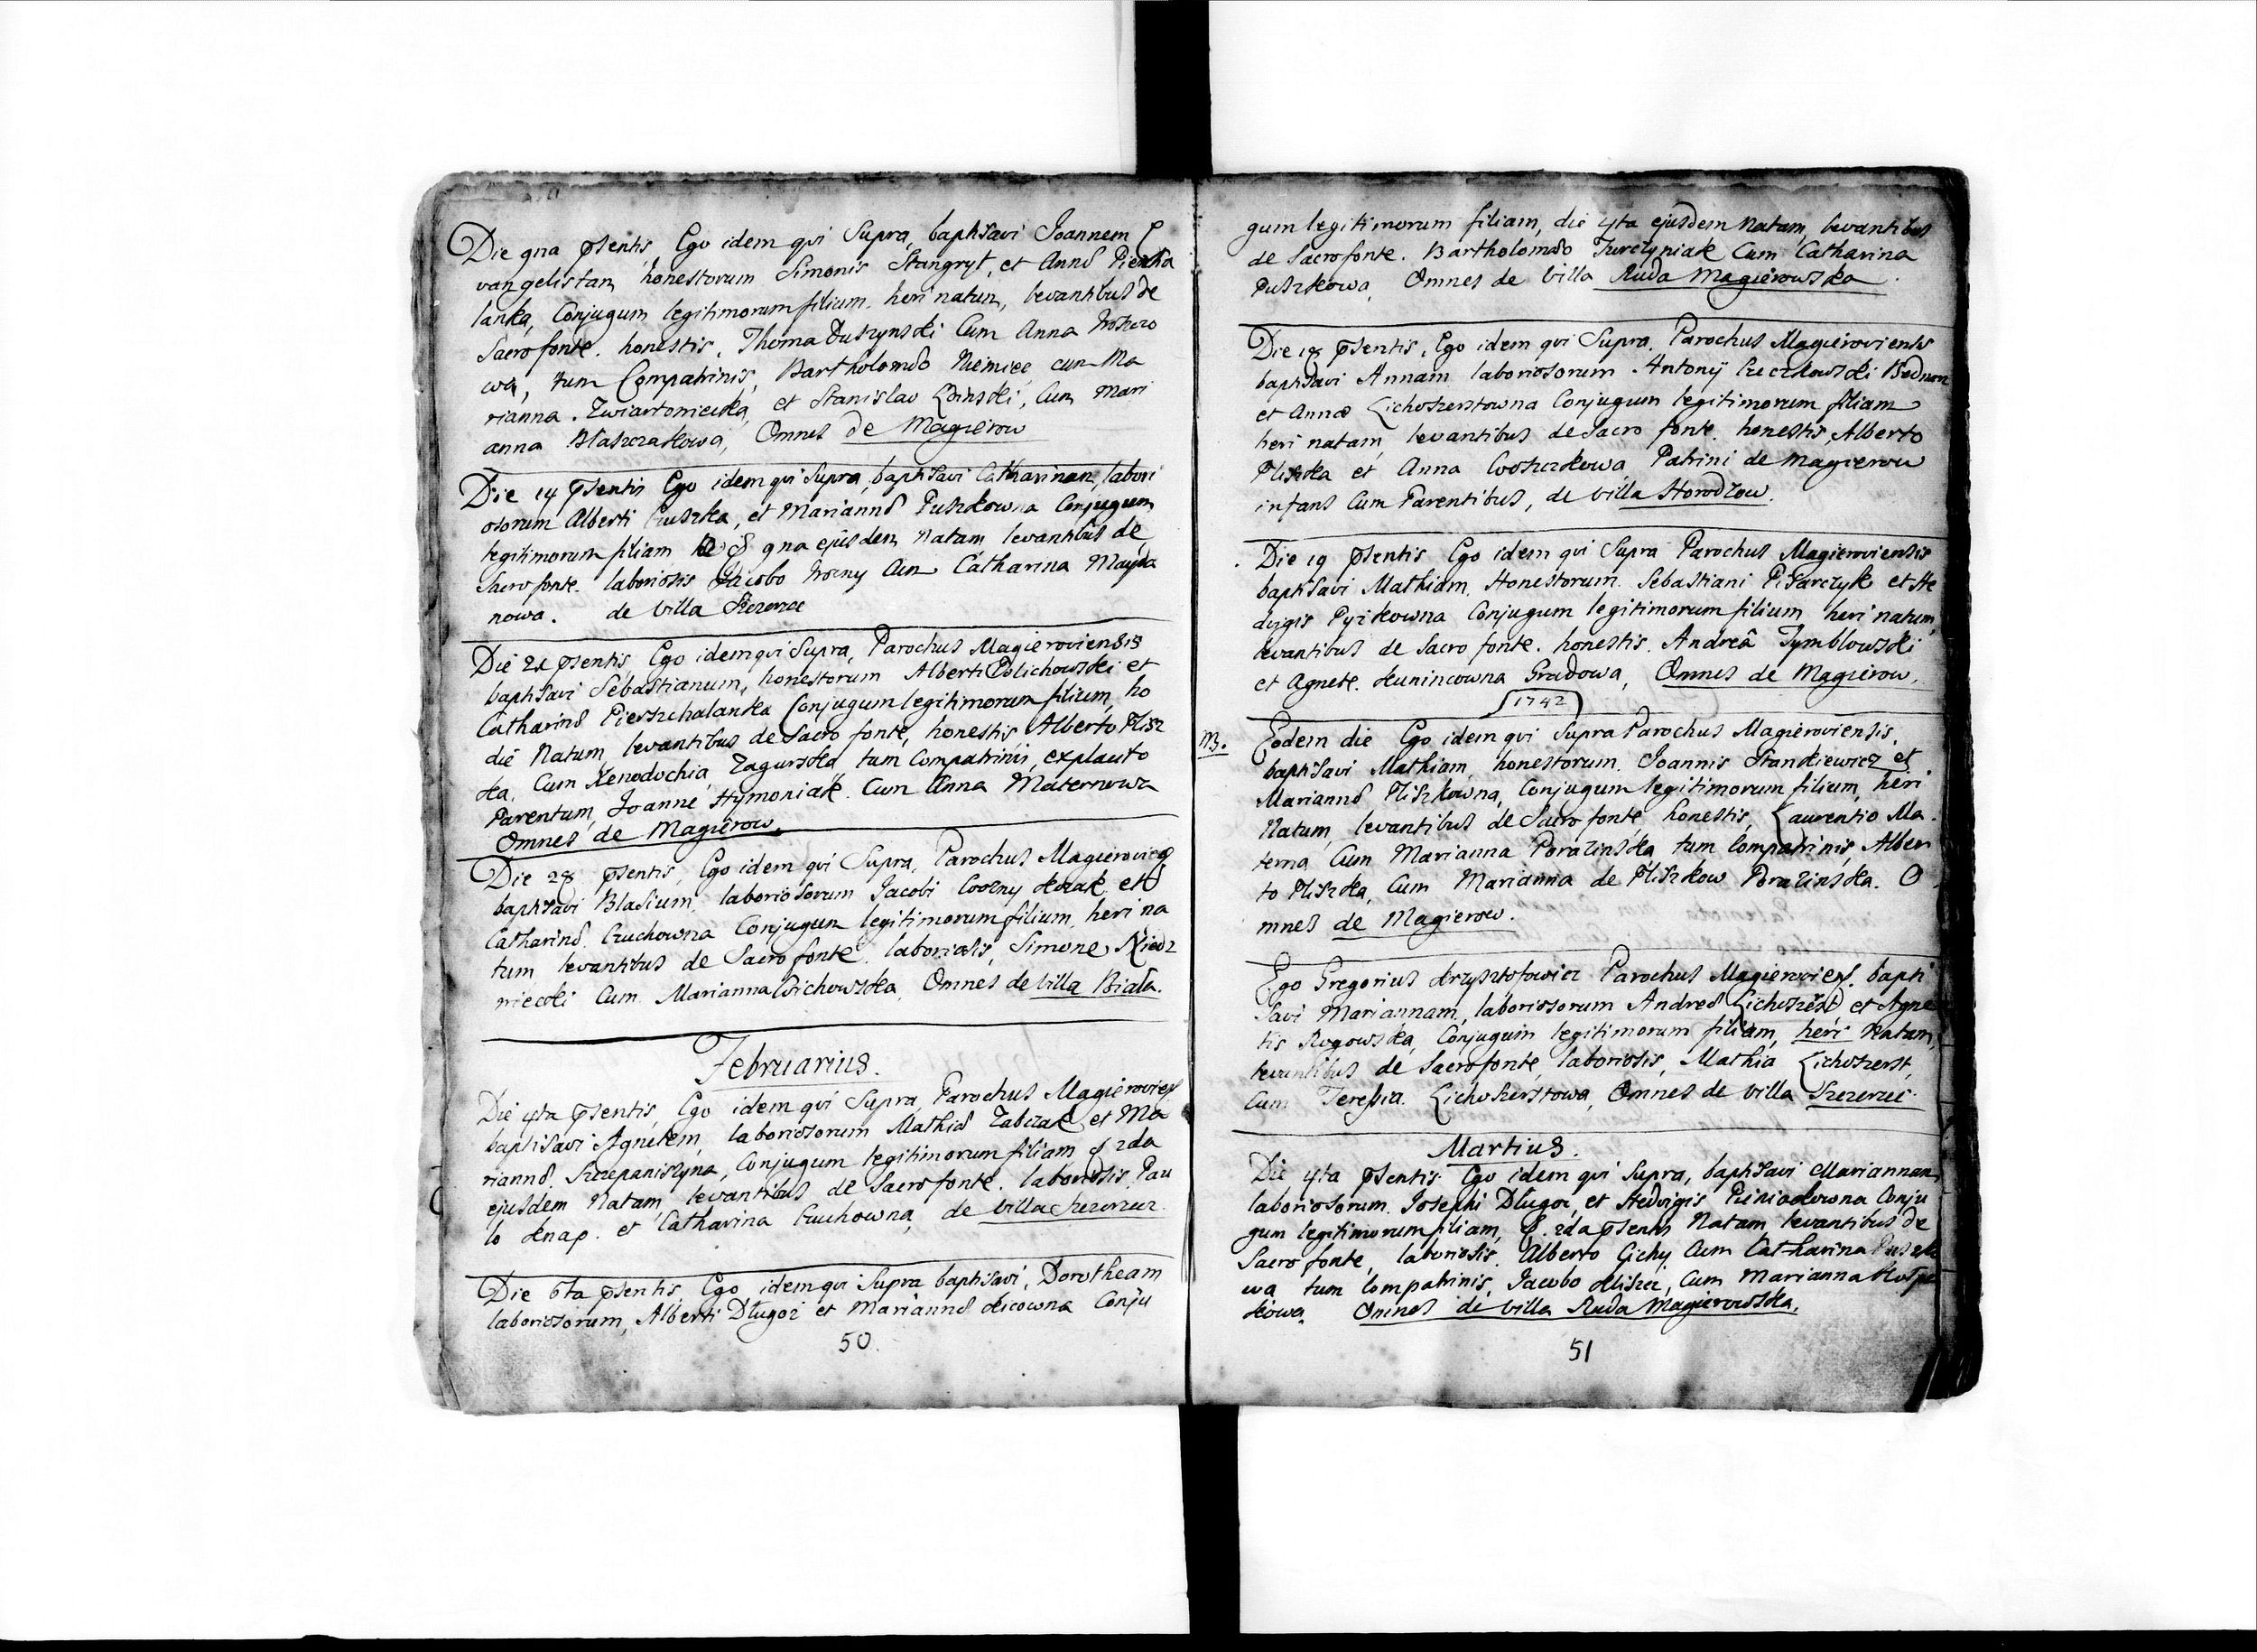 Die 9na psentis, Ego idem qvi Supra, baptisavi Joannem E
vangelistam honestorum Simonis Stangryt, et Annæ
lanka, Conjugum legitimorum filium heri natum, levantibus de
Sacro fonte. honestis, Thoma Duszynski Cum Anna
wa, tum Compatrinis, Bartholomæo Niemiec cum Ma
rianna et Stanislao Cum Mari
anna Błaszczakowa, Omnes de Magierow
Die 14 psentis Ego idem qvi Supra, baptisavi Catharinam, labori
osorum Alberti et Mariannæ Puszkowna Conjugum
legitimorum filiam 9na ejusdem Natam levantibus de
Sacro fonte. laboriosis Jacobo Wozny Cum Catharina Mayda
nowa. de Villa
Die 21 psentis, Ego idem qvi Supra, Parochus Magieroviensis
baptisavi Sebastianum, honestorum Alberti et
Catharinæ Pierzchalanka Conjugum legitimorum filium, ho
die Natum, levantibus de Sacro fonte, honestis Alberto Plisz
ka, Cum Xenodochia Zagurska tum Compatrinis,
Parentum, Joanne Szymoniak Cum Anna Maternowa
Omnes de Magierow.
Die 28 psentis, Ego idem qvi Supra, Parochus Magierovien
baptisavi Blasium, laboriosorum Jacobi Wozny Kozak et
Catharinæ Czuchowna Conjugum legitimorum filium, heri na
tum levantibus de Sacro fonte. laboriosis, Simone Niedz
wiecki Cum Marianna Omnes de Villa Biała.
Februarius.
Die 4ta psentis, Ego idem qvi Supra, Parochus Magierovien
baptisavi Agnetem, laboriosorum Mathiæ Zabczak et Ma
riannæ Szczepaniszyna, Conjugum legitimorum filiam 2da
ejusdem Natam, levantibus de Sacro fonte. laboriosis, Pau
lo Knap et Catharina Czuchowna, de Villa
Die 6ta psentis, Ego idem qvi Supra baptisavi, Dorotheam
laboriosorum, Alberti Długoz et Mariannæ Kicowna Conju
50.
gum legitimorum filiam, die 4ta ejusdem Natam, levantibus
de Sacro fonte. Bartholomæo Jurczyniak Cum Catharina
Puszkowa, Omnes de Villa Ruda Magierowska.
Die 18 psentis, Ego idem qvi Supra, Parochus Magieroviensis
baptisavi Annam laboriosorum Antonij Bednarz
et Annæ Lichoszerstowna Conjugum legitimorum filiam
heri natam, levantibus de Sacro fonte. honestis, Alberto
Pliszka et Anna Patrini de Magierow
infans Cum Parentibus, de Villa Horodzow.
Die 19 psentis Ego idem qvi Supra Parochus Magieroviensis
baptisavi Mathiam, Honestorum Sebastiani Pisarczyk et He
dvigis Conjugum legitimorum filium heri natum,
levantibus de Sacro fonte. honestis, Andreâ Tymblowski
et Agnete. Kunincowna Gradowa, Omnes de Magierow.
1742
Eodem die Ego idem qvi Supra Parochus Magieroviensis,
baptisavi Mathiam, honestorum Joannis Stankiewicz et
Mariannæ Pliszkowna, Conjugum legitimorum filium, heri
Natum, levantibus de Sacro fonte, honestis, Laurentio Ma
terna Cum Marianna Porazinska tum Compatrinis, Alber
to Pliszka, Cum Marianna de Pliszkow Porazinska. O
mnes de Magierow.
Ego Gregorius Krzysztofowicz Parochus Magierovien. bapti
savi Mariannam, laboriosorum Andreæ Lichoszerst et Agne
tis Rogowska, Conjugum legitimorum filiam, heri Natam,
levantibus de Sacro fonte, laboriosis, Mathia Lichoszerst,
Cum Teressia Lichoszerstowa, Omnes de Villa Szczerzec.
Martius.
Die 4ta psentis Ego idem qvi Supra, baptisavi Mariannam
laboriosorum Josephi Długoz, et Hedvigis Conju
gum legitimorum filiam, 2da psentis Natam, levantibus de
Sacro fonte, laboriosis, Alberto Cichy Cum Catharina Puszko
wa tum Compatrinis, Jacobo Cum Marianna
kowa. Omnes de Villa Ruda Magierowska.
51